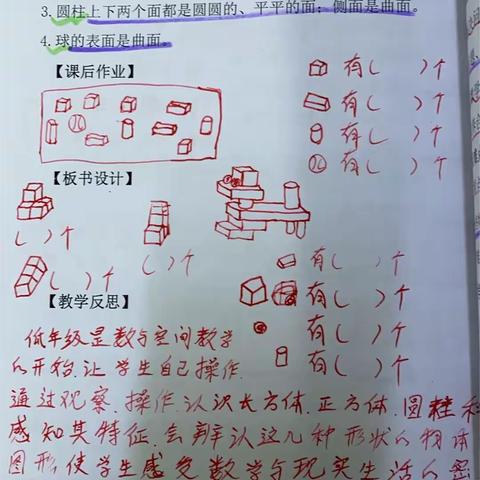 3.圆柱上下两个面都是圆圆的、平平的面；侧面是曲面。
4.球的表面是曲面。
【课后作业】
有( )个
有( )个
有( )个
有( )个
【板书设计】
( )个
( )个
( )个
有( )个
有( )个
有( )个
有( )个
【教学反思】
低年级是数与空间教学
的开始,让学生自己操作.
通过观察.操作.认识长方体.正方体.圆柱和
感知其特征.会辩认这几种形状的物体
图形,使学生感受数学与现实生活的密